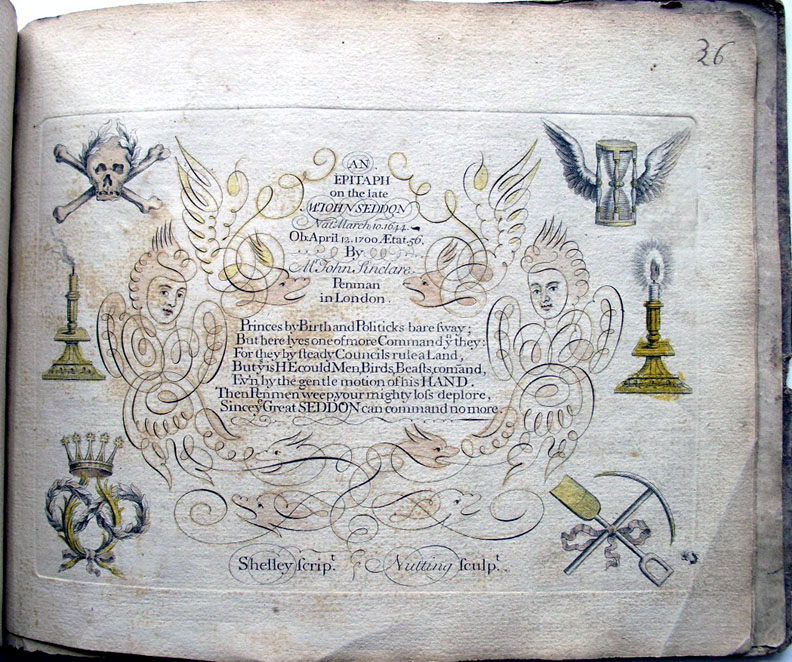 36
AN
EPITAPH
on the late
Mr. JOHN SEDDON
Nat. March. 10. 1644.
Ob. April 12. 1700 Ætat. 56.
By
Mr. John Sinclare.
Penman
in London.
Princes by Birth and Politicks bare ſway;
But here lyes one of more Command yn. they:
For they by ſteady Councils rule a Land,
But ys. is HE could Men, Birds, Beaſts, comand,
Ev'n by the gentle motion of his HAND.
Then Penmen weep, your mighty loſs deplore,
Since ye Great SEDDON can command no more.
Shelley ſcript.
Nutting ſculpt.